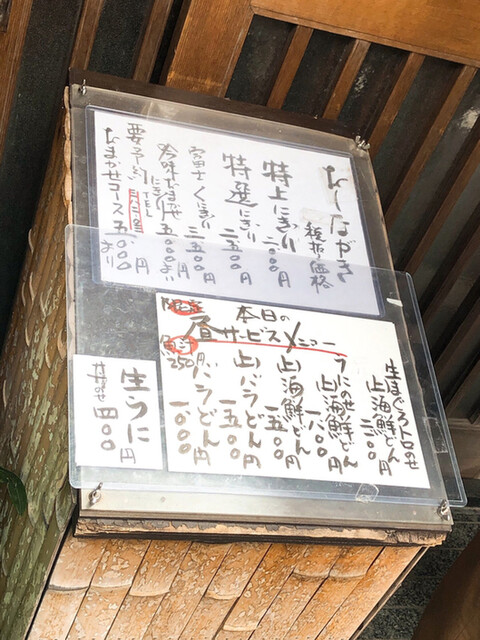 おしながき
税抜き価格
特上にぎり 二〇〇〇円
特選にぎり 二五〇〇円
富士にぎり 三五〇〇円
吟味おまかせにぎり 五〇〇〇円より
要予約 TEL
おまかせコース 五、〇〇〇円より
本日の
昼サービスメニュー
限定
魚汁
250円
生まぐろトロのせ
上海鮮どん 二二〇〇円
うにのせ鮮どん
上海鮮 一八〇〇円
上海鮮どん 一五〇〇円
上バラどん 一五〇〇円
バラどん 一〇〇〇円
生うに 円
時価 四〇〇